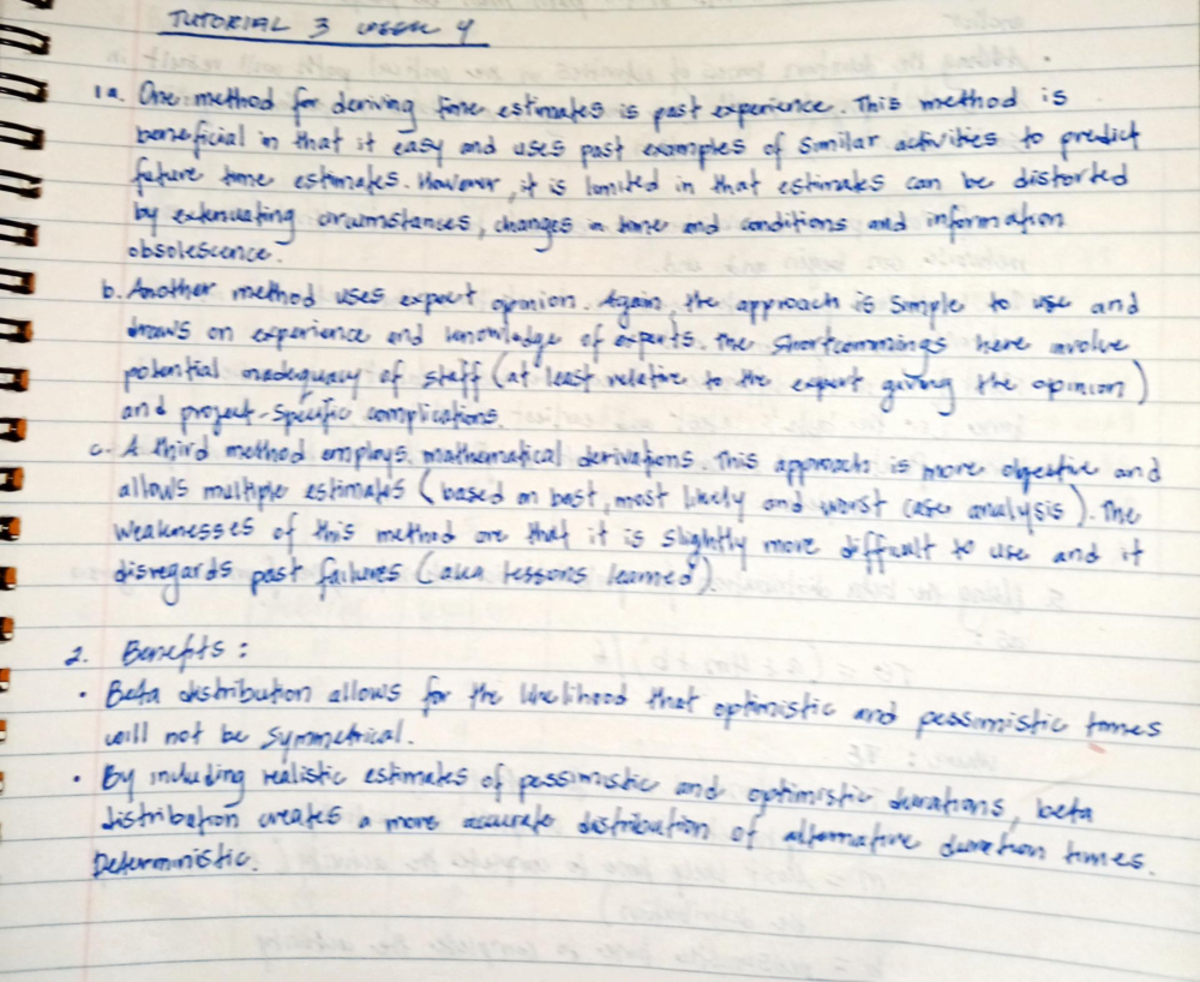 TUTORIAL 3 WEEK 4
1a. One method for deriving time estimates is past experience. This method is
beneficial in that it easy and uses past examples of similar activities to predict
future time estimates. However, it is limited in that estimates can be distorted
by extenuating circumstances, changes in time and conditions and information
obsolescence.
b. Another method uses expert opinion. Again, the approach is simple to use and
draws on experience and knowledge of experts. The shortcommings here involve
potential inadequacy of staff (at least relative to the expert giving the opinion)
and project-specific complications.
c. A third method employs mathematical derivations. This approach is more objective and
allows multiple estimates (based on best, most likely and worst case analysis). The
weaknesses of this method are that it is slightly more difficult to use and it
disregards past failures (aka lessons learned).
2. Benefits:
• Beta distribution allows for the likelihood that optimistic and pessimistic times
will not be symmetrical.
• By including realistic estimates of pessimistic and optimistic durations, beta
distribution creates a more accurate distribution of alternative duration times.
Deterministic.